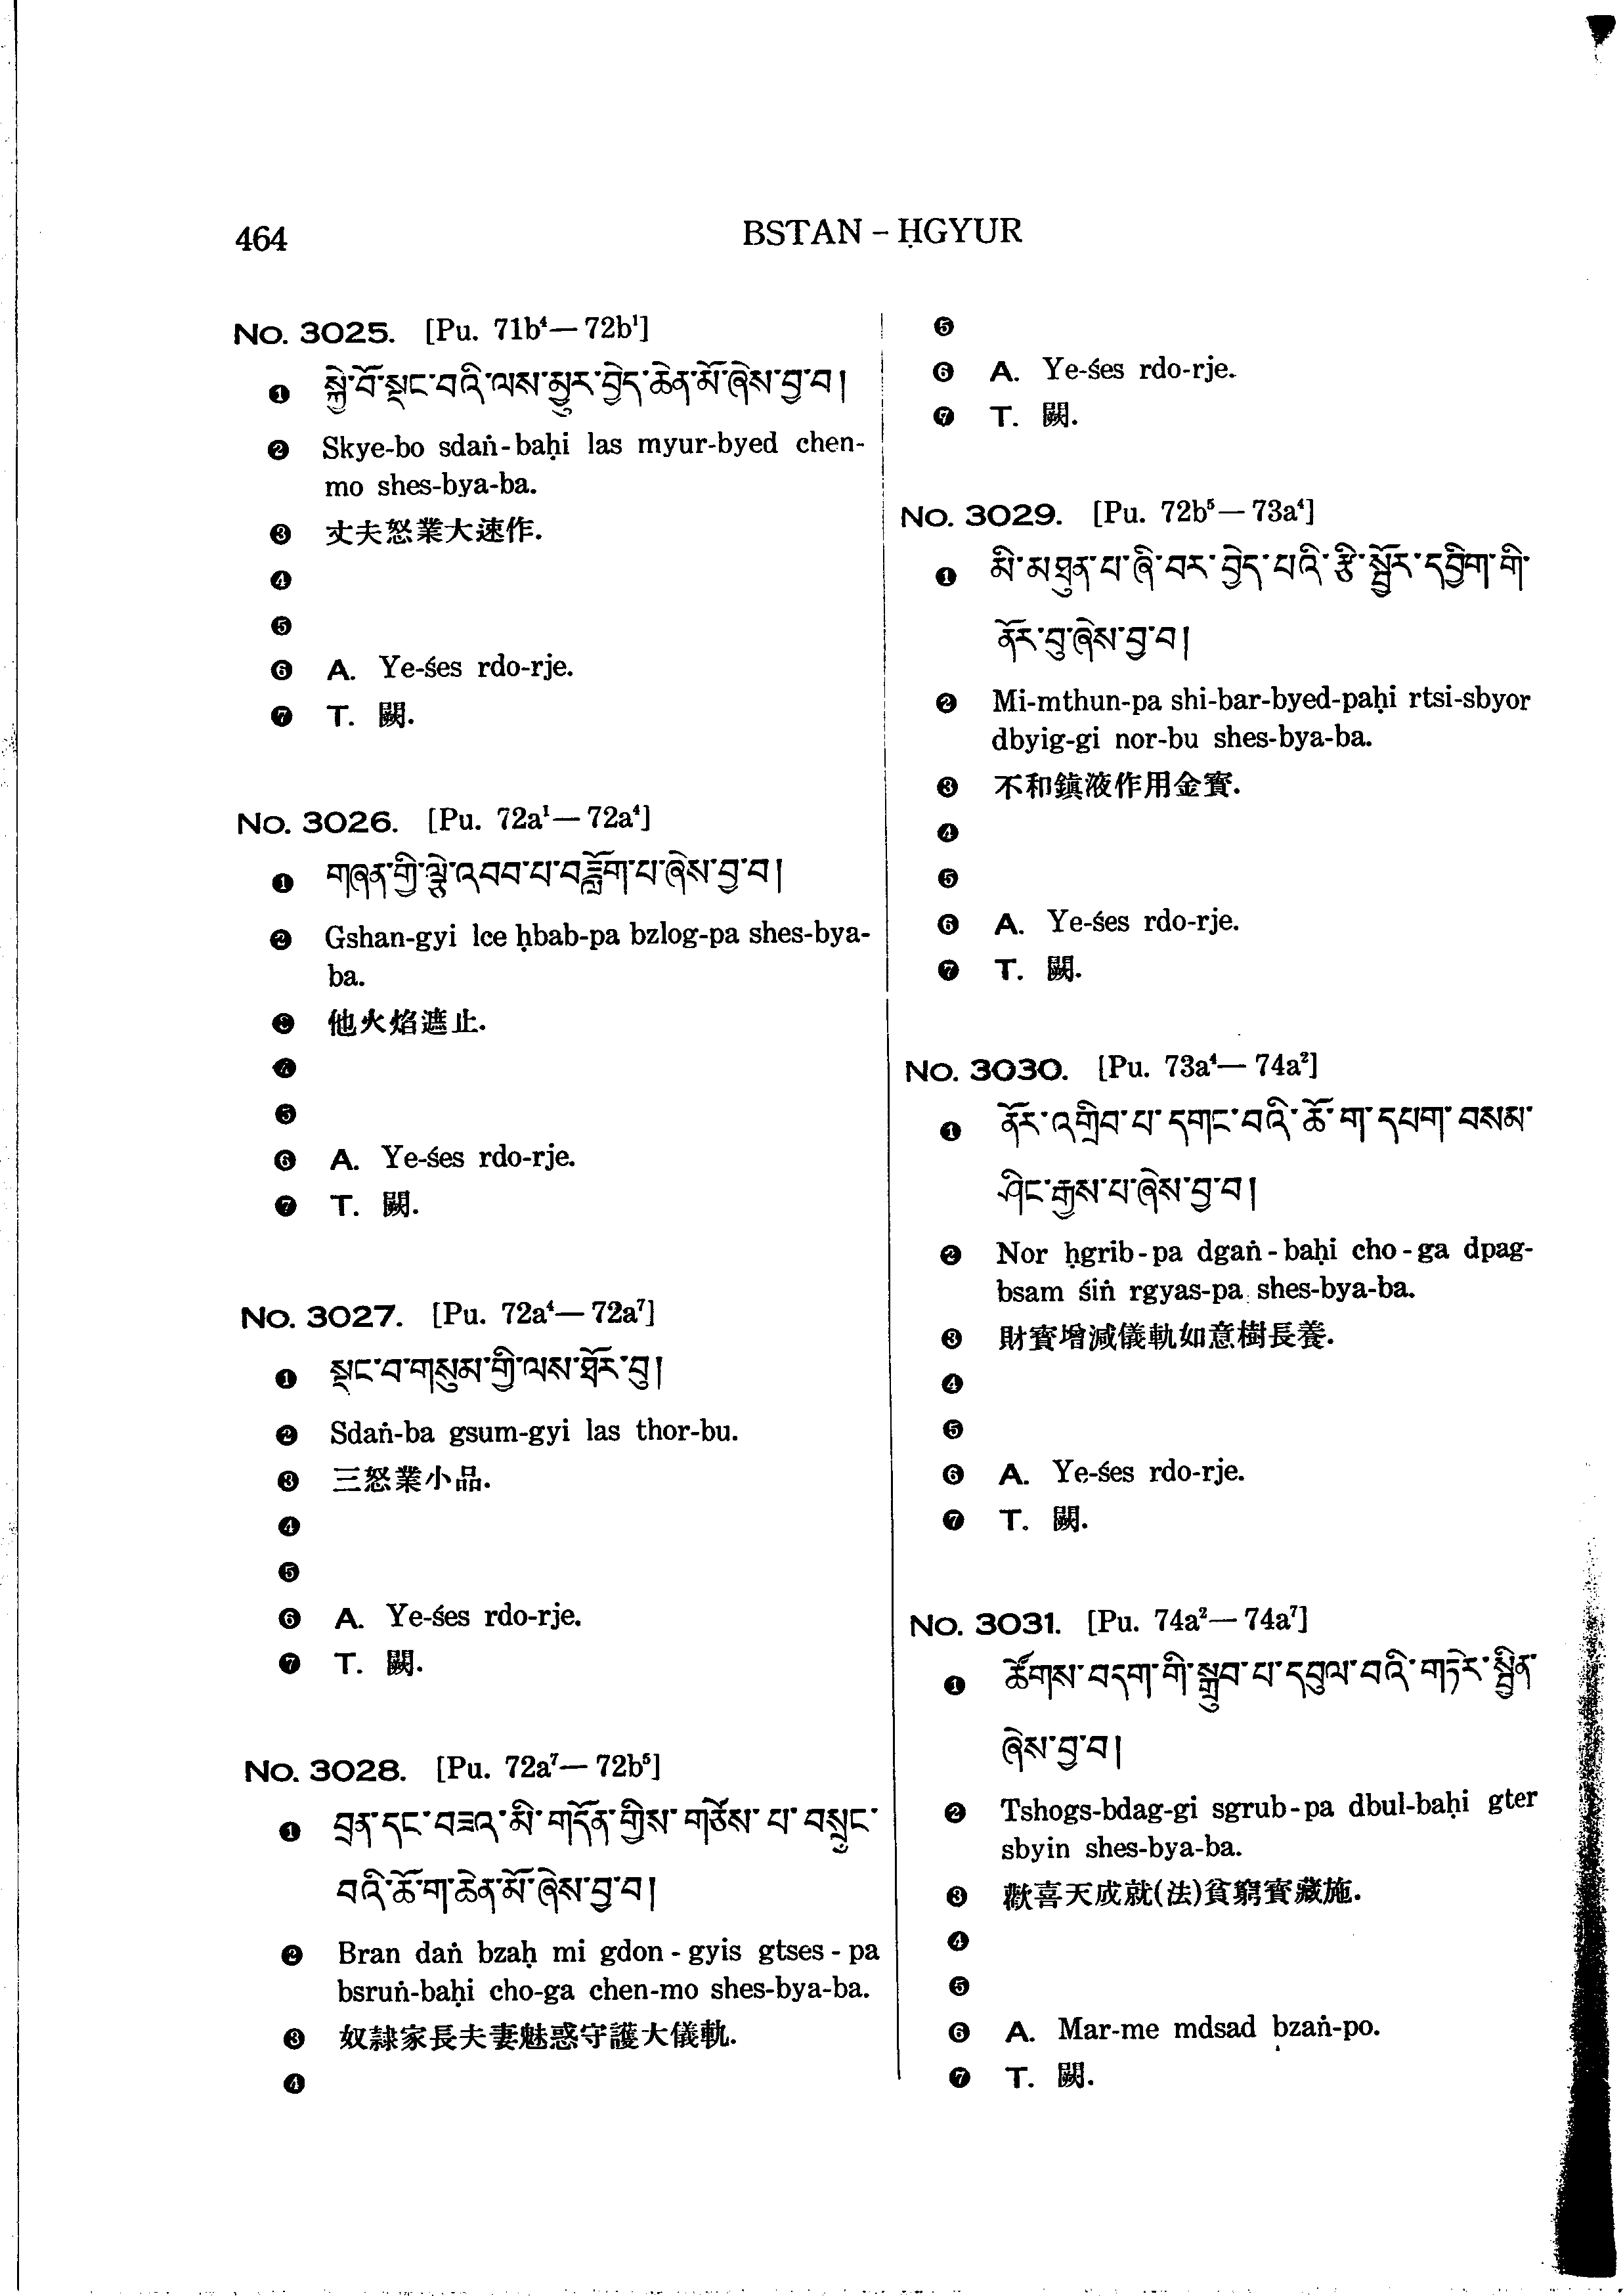 464
BSTAN – ḤGYUR
No. 3025. [Pu. 71b⁴— 72b¹]
❶ སྐྱེ་བོ་སྡང་བའི་ལས་མྱུར་བྱེད་ཆེན་མོ་ཞེས་བྱ་བ།
❷ Skye-bo sdaṅ-baḥi las myur-byed chen-
mo shes-bya-ba.
❸ 丈夫怒業大速作.
❹
❺
❻ A. Ye-śes rdo-rje.
❼ T. 闕.
No. 3026. [Pu. 72a¹— 72a⁴]
❶ གཞན་གྱི་ལྕེ་འབབ་པ་བཟློག་པ་ཞེས་བྱ་བ།
❷ Gshan-gyi lce ḥbab-pa bzlog-pa shes-bya-
ba.
❸ 他火焰遮止.
❹
❺
❻ A. Ye-śes rdo-rje.
❼ T. 闕.
No. 3027. [Pu. 72a⁴— 72a⁷]
❶ སྡང་བ་གསུམ་གྱི་ལས་ཐོར་བུ།
❷ Sdaṅ-ba gsum-gyi las thor-bu.
❸ 三怒業小品.
❹
❺
❻ A. Ye-śes rdo-rje.
❼ T. 闕.
No. 3028. [Pu. 72a⁷— 72b⁵]
❶ བྲན་དང་བཟའ་མི་གདོན་གྱིས་གཙེས་པ་བསྲུང་
བའི་ཆོ་ག་ཆེན་མོ་ཞེས་བྱ་བ།
❷ Bran daṅ bzaḥ mi gdon-gyis gtses-pa
bsruṅ-baḥi cho-ga chen-mo shes-bya-ba.
❸ 奴隷家長夫妻魅惑守護大儀軌.
❹
❺
❻ A. Ye-śes rdo-rje.
❼ T. 闕.
No. 3029. [Pu. 72b⁵— 73a⁴]
❶ མི་མཐུན་པ་ཞི་བར་བྱེད་པའི་རྩི་སྦྱོར་དབྱིག་གི་
ནོར་བུ་ཞེས་བྱ་བ།
❷ Mi-mthun-pa shi-bar-byed-paḥi rtsi-sbyor
dbyig-gi nor-bu shes-bya-ba.
❸ 不和鎭液作用金寳.
❹
❺
❻ A. Ye-śes rdo-rje.
❼ T. 闕.
No. 3030. [Pu. 73a⁴— 74a²]
❶ ནོར་འགྲིབ་པ་དགང་བའི་ཆོ་ག་དཔག་བསམ་
ཤིང་རྒྱས་པ་ཞེས་བྱ་བ།
❷ Nor ḥgrib-pa dgaṅ-baḥi cho-ga dpag-
bsam śiṅ rgyas-pa shes-bya-ba.
❸ 財寳增減儀軌如意樹長養.
❹
❺
❻ A. Ye-śes rdo-rje.
❼ T. 闕.
No. 3031. [Pu. 74a²— 74a⁷]
❶ ཚོགས་བདག་གི་སྒྲུབ་པ་དབུལ་བའི་གཏེར་སྦྱིན་
ཞེས་བྱ་བ།
❷ Tshogs-bdag-gi sgrub-pa dbul-baḥi gter
sbyin shes-bya-ba.
❸ 歡喜天成就(法)貧窮寳藏施.
❹
❺
❻ A. Mar-me mdsad bzaṅ-po.
❼ T. 闕.